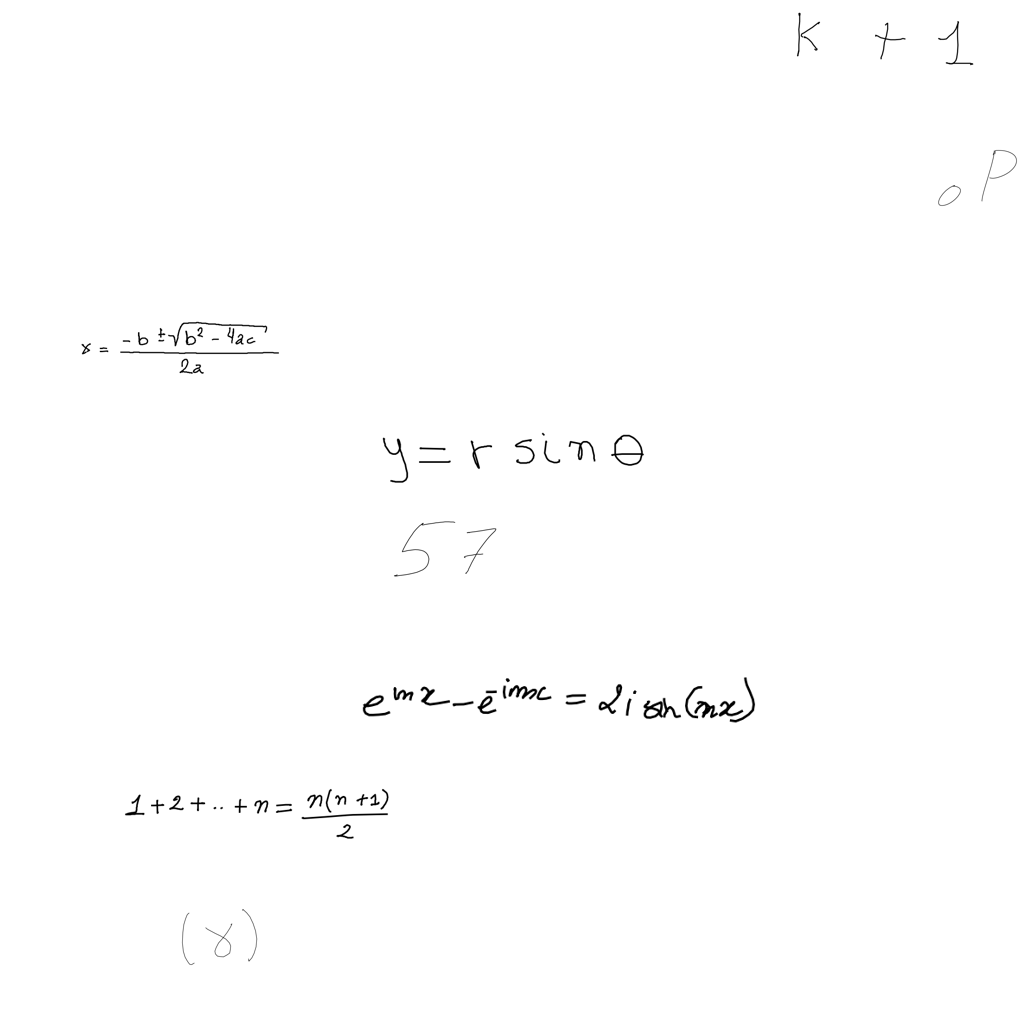 k + 1
∘P
x = \frac{-b ± \sqrt{b² - 4ac}}{2a}
y = r sin θ
57
e^{inx} - e^{-inx} = 2i sin(nx)
1 + 2 + .. + n = \frac{n(n+1)}{2}
(γ)